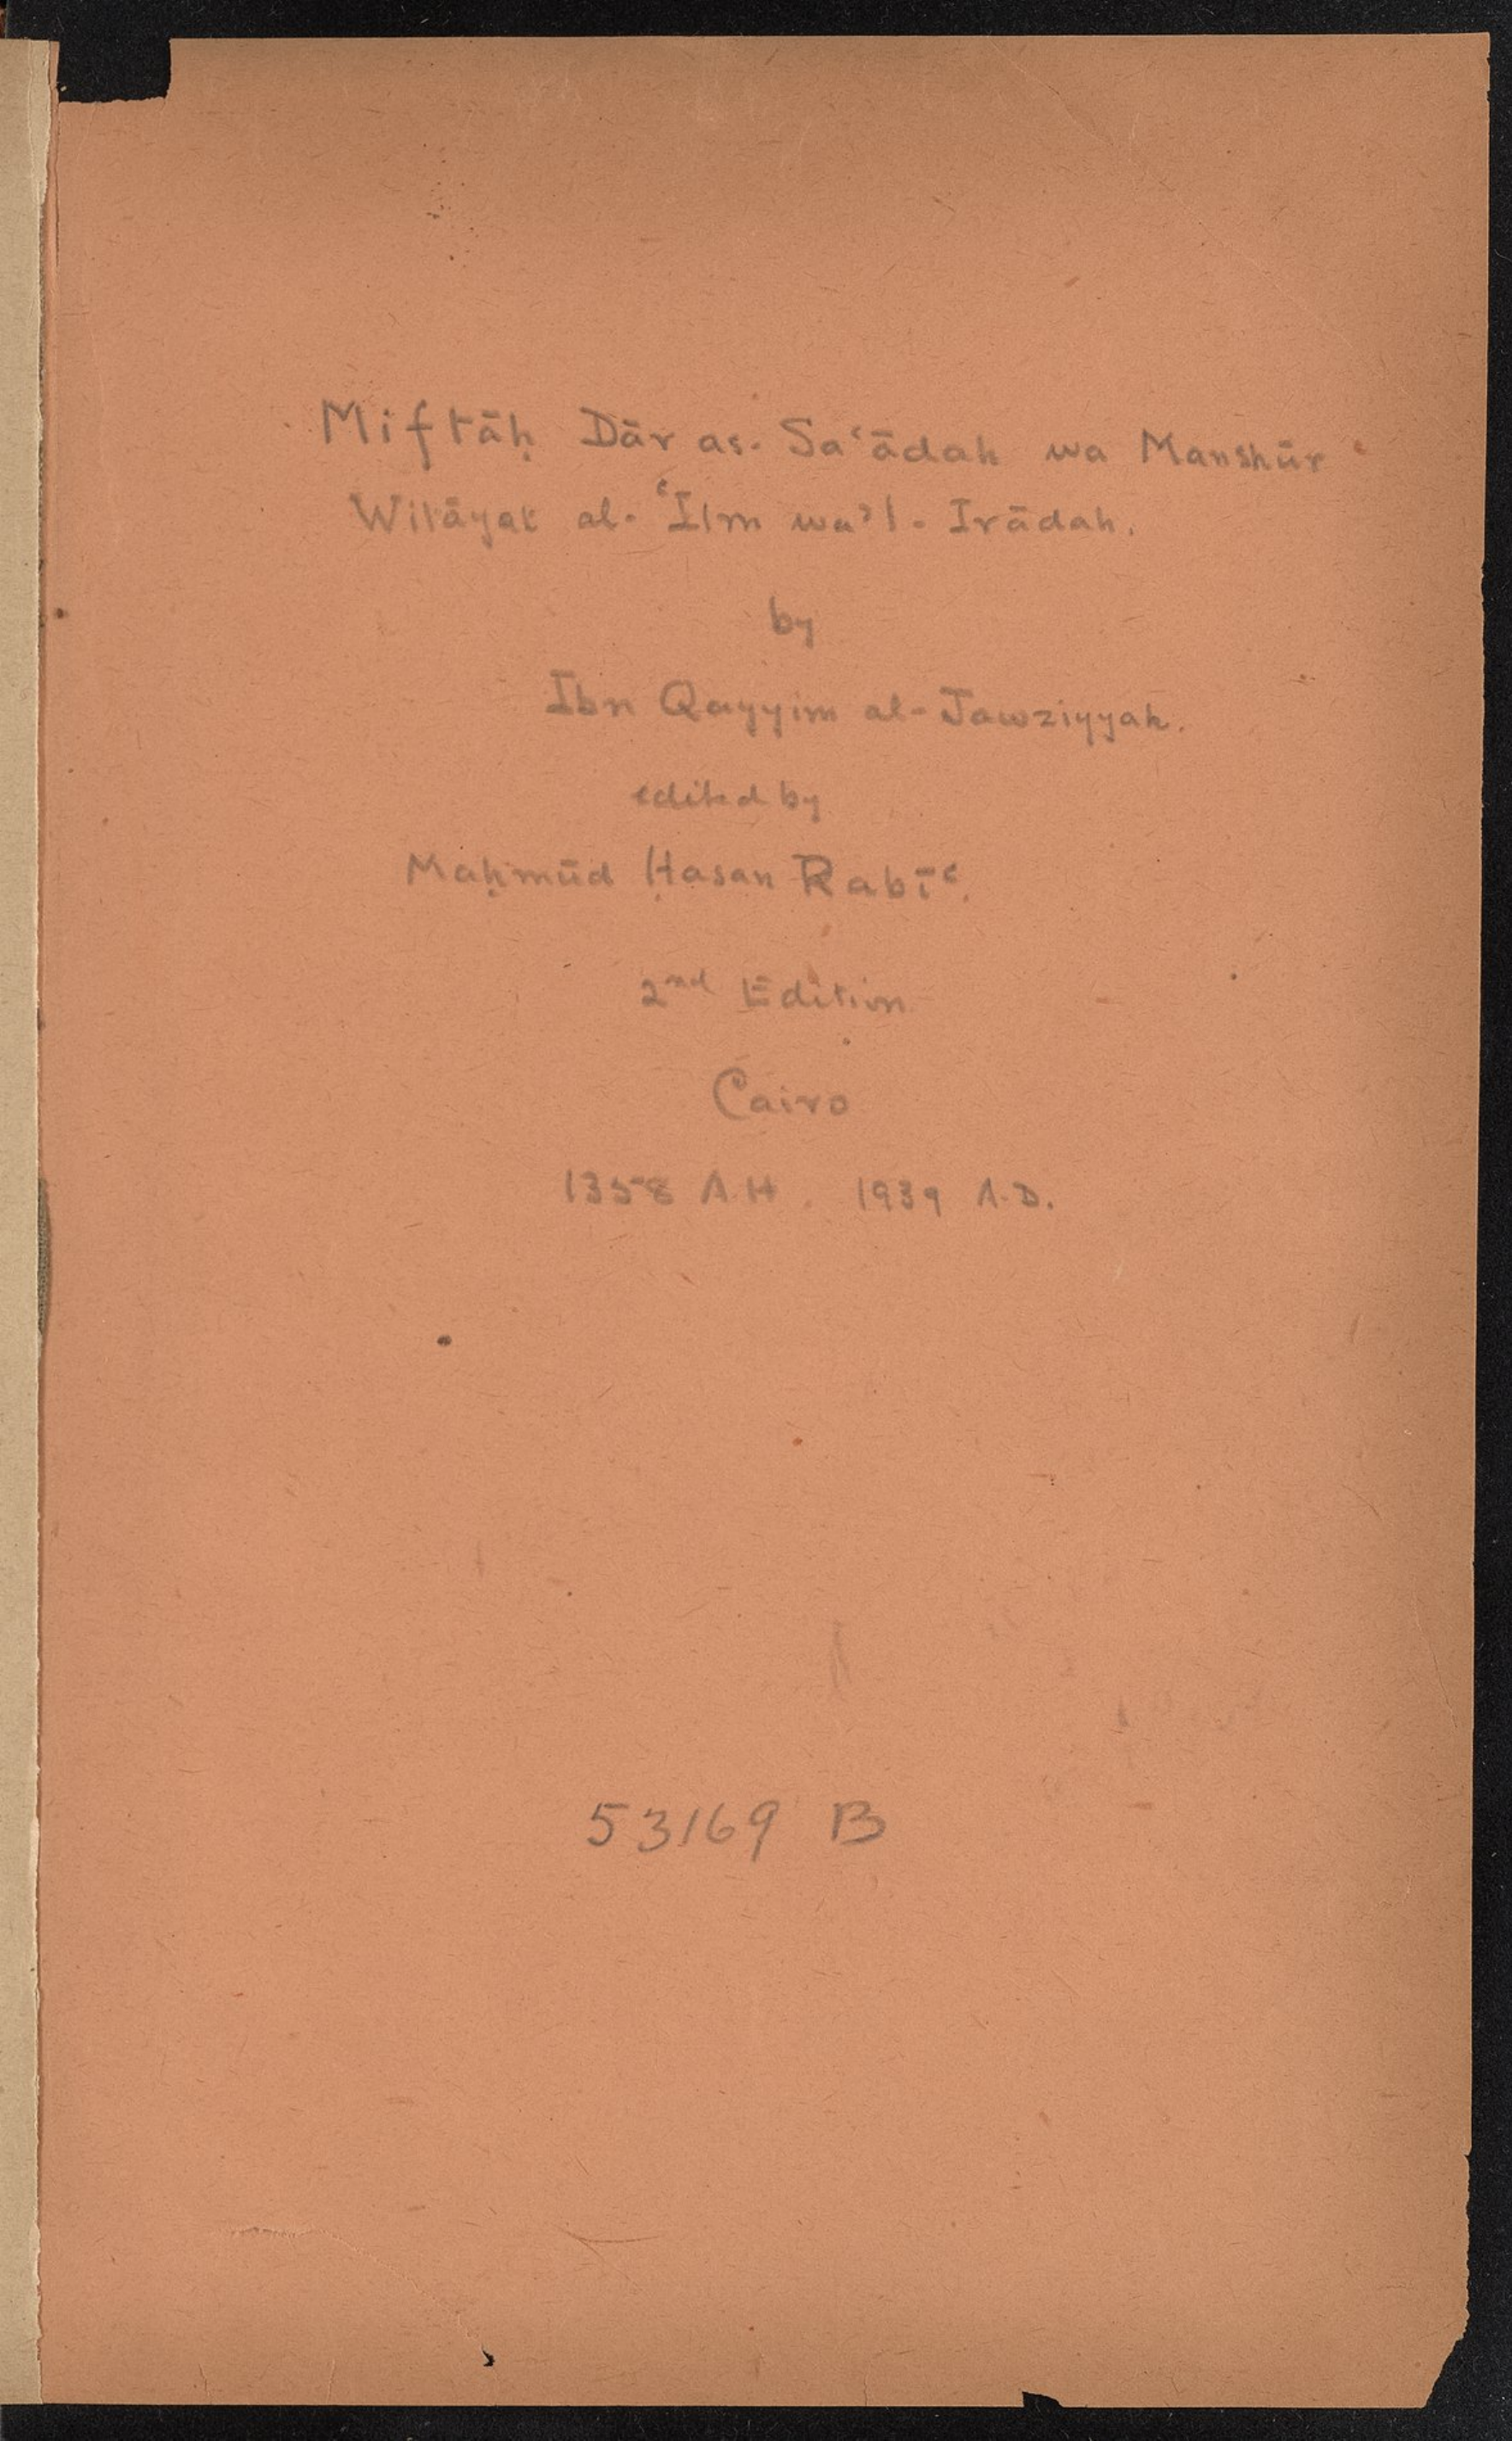 Miftāḥ Dār as-Sa‘ādah wa Manshūr
Wilāyat al-‘Ilm wa’l-Irādah.
by
Ibn Qayyim al-Jawziyyah.
edited by
Maḥmūd Ḥasan Rabī‘.
2nd Edition
Cairo
1358 A.H. 1939 A.D.
53169 B